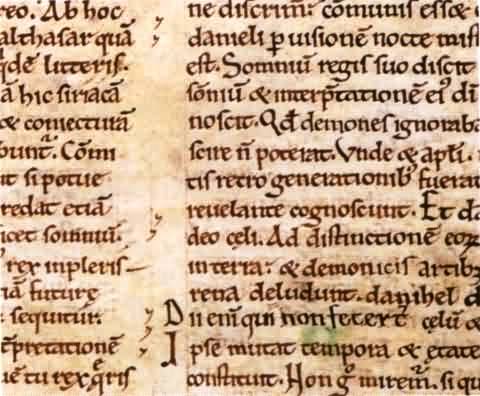 reo. Ab hoc
althasar quā
qdē litteris.
a hic siriacā
& coniecturā
bunt. Cōm
ut si potue
redat etiā
icet somniū.
rex inpleris
iā future
sequitur.
tp̄retationē
uē tu rex q̄ris
ne discrim̄. cōmunis
danieli ꝑ uisionē nocte mist
est. Somniū regis suo discit
sōniū & interp̄tationē eiꝰ di
noscit. Qđ demones ignoraba
scire n̄ poterat. Vnde & apłi.
tis retro generationibꝫ fuerat
reuelante cognoscunt. Et da
deo cęli. Ad distinctionē eoꝝ
in terra. & demonicis artibꝫ
rena deludunt. danihel d
Dii enī qui non fecerт̄ cęlū &
Ipse mutat tempora & etate
constituit. Non gͦ miremͬ. si qu